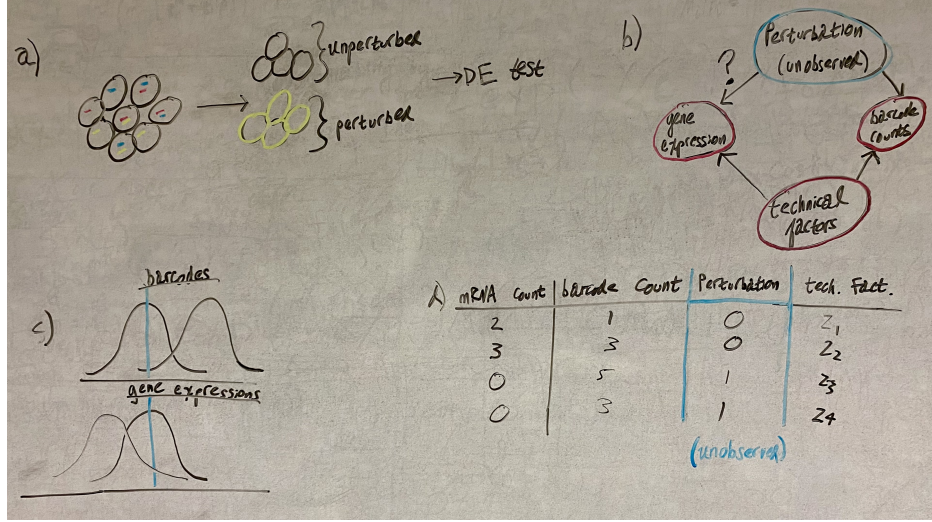 a)
unperturbed
perturbed
→ DE test
b)
Perturbation
(unobserved)
?
gene
expression
barcode
counts
technical
factors
c)
barcodes
gene expressions
d)
mRNA Count | barcode Count | Perturbation | tech. Fact.
2 1 0 Z1
3 3 0 Z2
0 5 1 Z3
0 3 1 Z4
(unobserved)